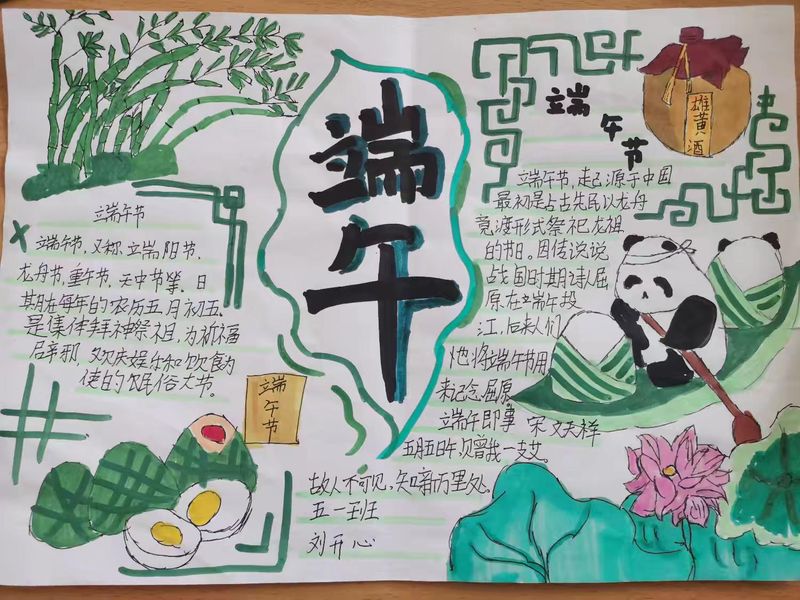 端午
端午节
端午节，又称端阳节、
龙舟节，重午节，天中节等。日
期在每年的农历五月初五。
是集体拜神祭祖，为祈福
辟邪，欢庆娱乐和饮食为
使的民俗大节。
端午节
端午节
雄黄酒
端午节，起源于中国
最初是上古先民以龙舟
竞渡形式祭祀龙祖
的节日。因传说说
战国时期诗人屈
原在端午投
江，后来人们
也将端午节用
来记念屈原。
端午即事 宋 文天祥
五月五日午，贝赠我一支艾。
故人不可见，知新万里处。
五一班
刘开心